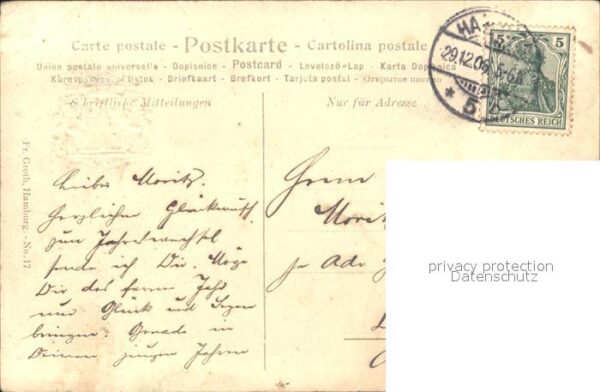 Carte postale - Postkarte - Cartolina postale
Union postale universelle - Dopisnice - Postcard - Levelező-Lap - Karta Dopisnica
Korespondenčni listek - Briefkaart - Brefkort - Tarjeta postal - Открытое письмо
Schriftliche Mitteilungen
Nur für Adresse
HA
29.12.09. 5-6N
* 5
5
DEUTSCHES REICH
Fr. Groth, Hamburg. - No. 17
Lieber Moritz.
Herzlichen Glückwunsch
zum Jahreswechsel
sende ich Dir. Möge
Dir das ferne Jahr
nur Glück und Segen
bringen. Gerade in
Deinen jungen Jahren
Herrn
Morit
privacy protection
Datenschutz